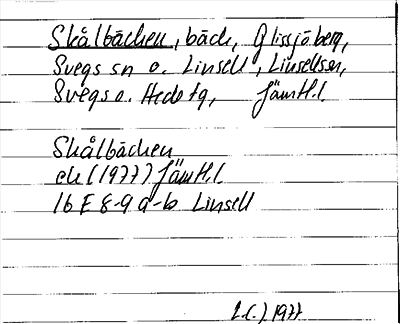 Skålbäcken, bäck, Glissjöberg,
Svegs sn o. Linsell, Linsells sn,
Svegs o. Heds tg, Jämtl.l.
Skålbäcken
ek (1977) Jämtl.l.
16 E 8-9 a-b Linsell
1977